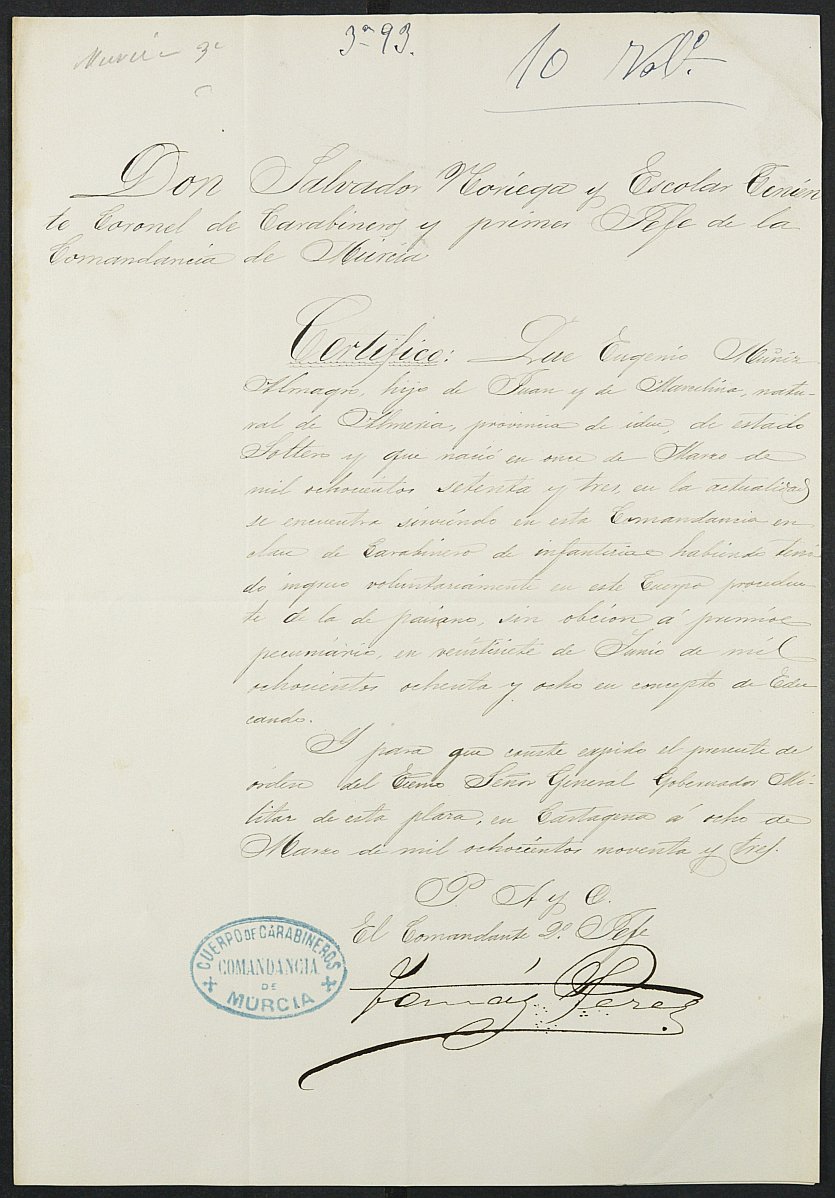 Murcia 3ª
3ª 93.
10 Volº
Don Salvador Noriega y Escolar Tenien
te Coronel de Carabineros y primer Jefe de la
Comandancia de Murcia
Certifico: Que Eugenio Muñiz
Almagro, hijo de Juan y de Marcelina, natu-
ral de Almeria, provincia de idem, de estado
Soltero y que nació en once de Marzo de
mil ochocientos setenta y tres, en la actualidad
se encuentra sirviendo en esta Comandancia en
clase de Carabinero de infanteria habiendo teni
do ingreso voluntariamente en este Cuerpo proceden
te de la de paisano, sin obcion á premios
pecuniario, en veintisiete de Junio de mil
ochocientos ochenta y ocho en concepto de Edu
cando.
Y para que conste expido el presente de
orden del Excmo Señor General Gobernador Mi-
litar de esta plaza, en Cartagena á ocho de
Marzo de mil ochocientos noventa y tres.
P. A y O.
El Comandante 2º Jefe
Tomás Perez
CUERPO DE CARABINEROS
COMANDANCIA
DE
MURCIA